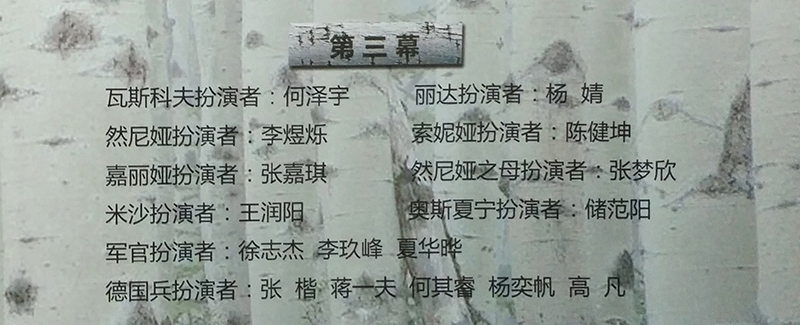 第三幕
瓦斯科夫扮演者：何泽宇 丽达扮演者：杨 婧
然尼娅扮演者：李煜烁 索妮娅扮演者：陈健坤
嘉丽娅扮演者：张嘉琪 然尼娅之母扮演者：张梦欣
米沙扮演者：王润阳 奥斯夏宁扮演者：储范阳
军官扮演者：徐志杰 李玖峰 夏华晔
德国兵扮演者：张 楷 蒋一夫 何其睿 杨奕帆 高 凡